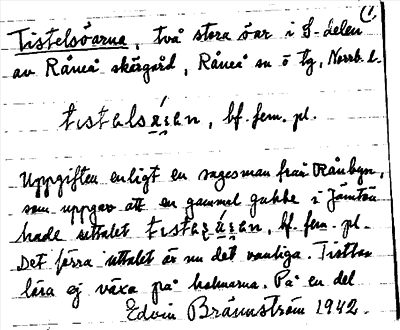 1.
Tistelsöarna, två stora öar i S-delen
av Råneå skärgård, Råneå sn ö tg, Norrb. l.
bf. fem. pl.
Uppgiften enligt en sagesman från Rånbyn,
som uppgav att en gammal gubbe i Jämtön
hade uttalet bf. fem. pl.
Det förra uttalet är nu det vanliga. Tistlar
lära ej växa på holmarna. På en del
Edvin Brännström 1942.